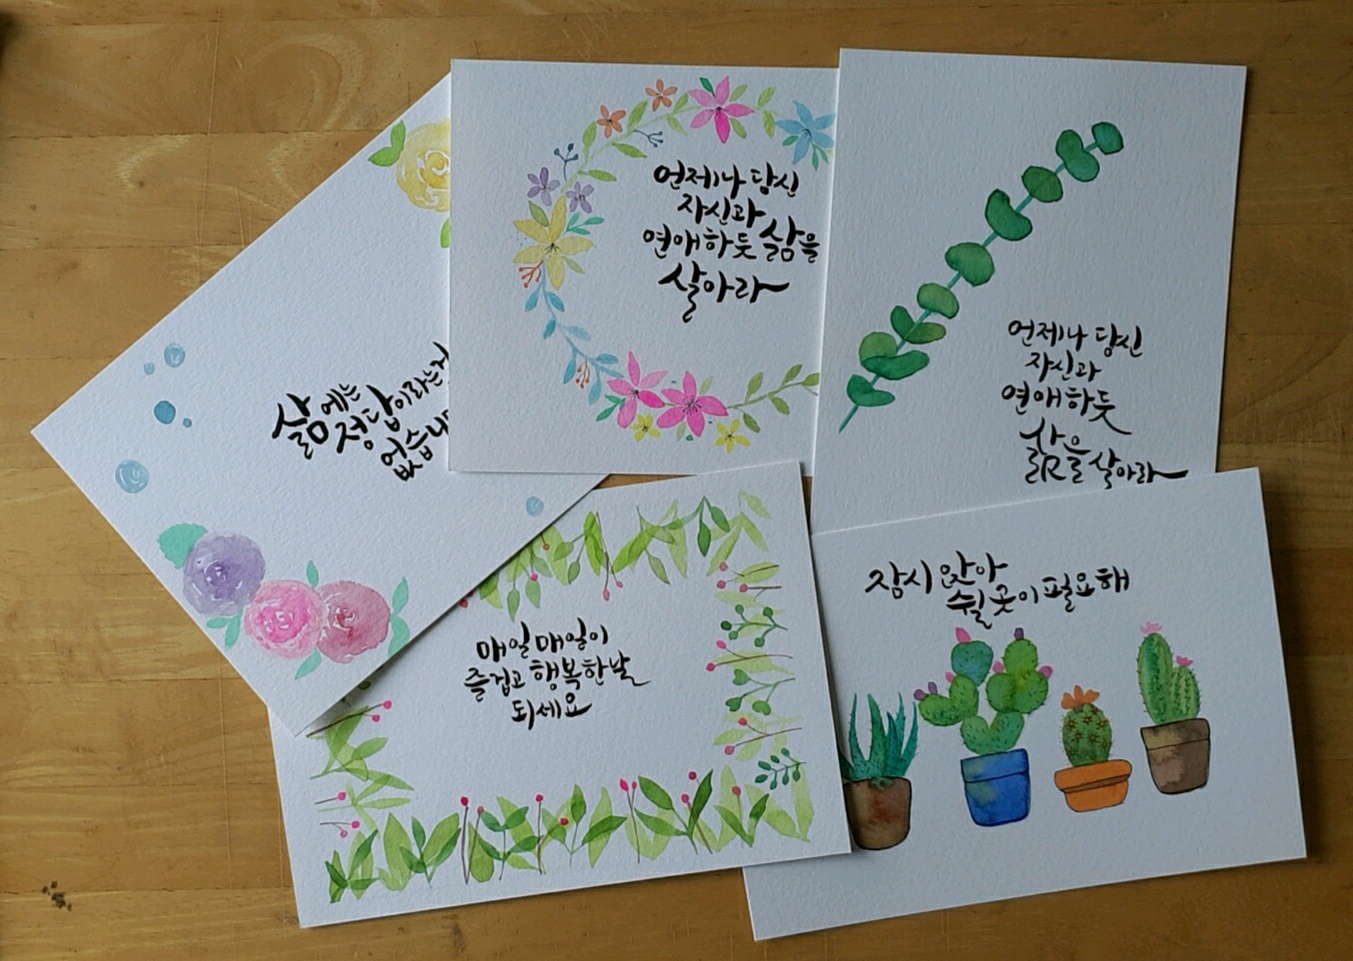 삶에는
정답이라는
없습니
언제나 당신
자신과
연애하듯 삶을
살아라
언제나 당신
자신과
연애하듯
삶을 살아라
매일매일이
즐겁고 행복한 날
되세요
잠시 앉아
쉴 곳이 필요해